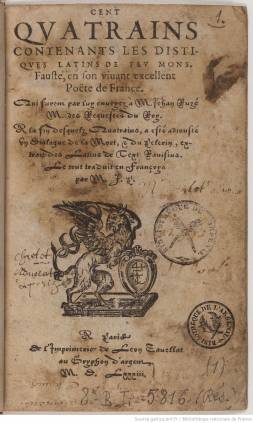 CENT
QVATRAINS
CONTENANTS LES DISTI-
QVES LATINS DE FEV MONS.
Fauste, en son viuant excellent
Poëte de France.
Qui furent par luy enuoyez a M. Jehan Ruzé
M. des Requestes du Roy.
A la fin desquelz Quatrains, a esté adiousté
vn Dialogue de la Mort, & du Pelerin, ex-
traict des Latins de Text Rauisius.
Le tout traduit en Françoys
par M. J. P.
A Paris
De l'Imprimerie de Leon Cauellat
au Gryphon d'argent.
M. D. Lxxxiii.
5816
Source gallica.bnf.fr / Bibliothèque nationale de France